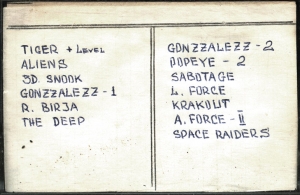 TIGER + LEVEL
ALIENS
3D. SNOOK
GONZZALEZZ - 1
R. BIRJA
THE DEEP
GONZZALEZZ - 2
POPEYE - 2
SABOTAGE
L. FORCE
KRAKOUT
A. FORCE - II
SPACE RAIDERS